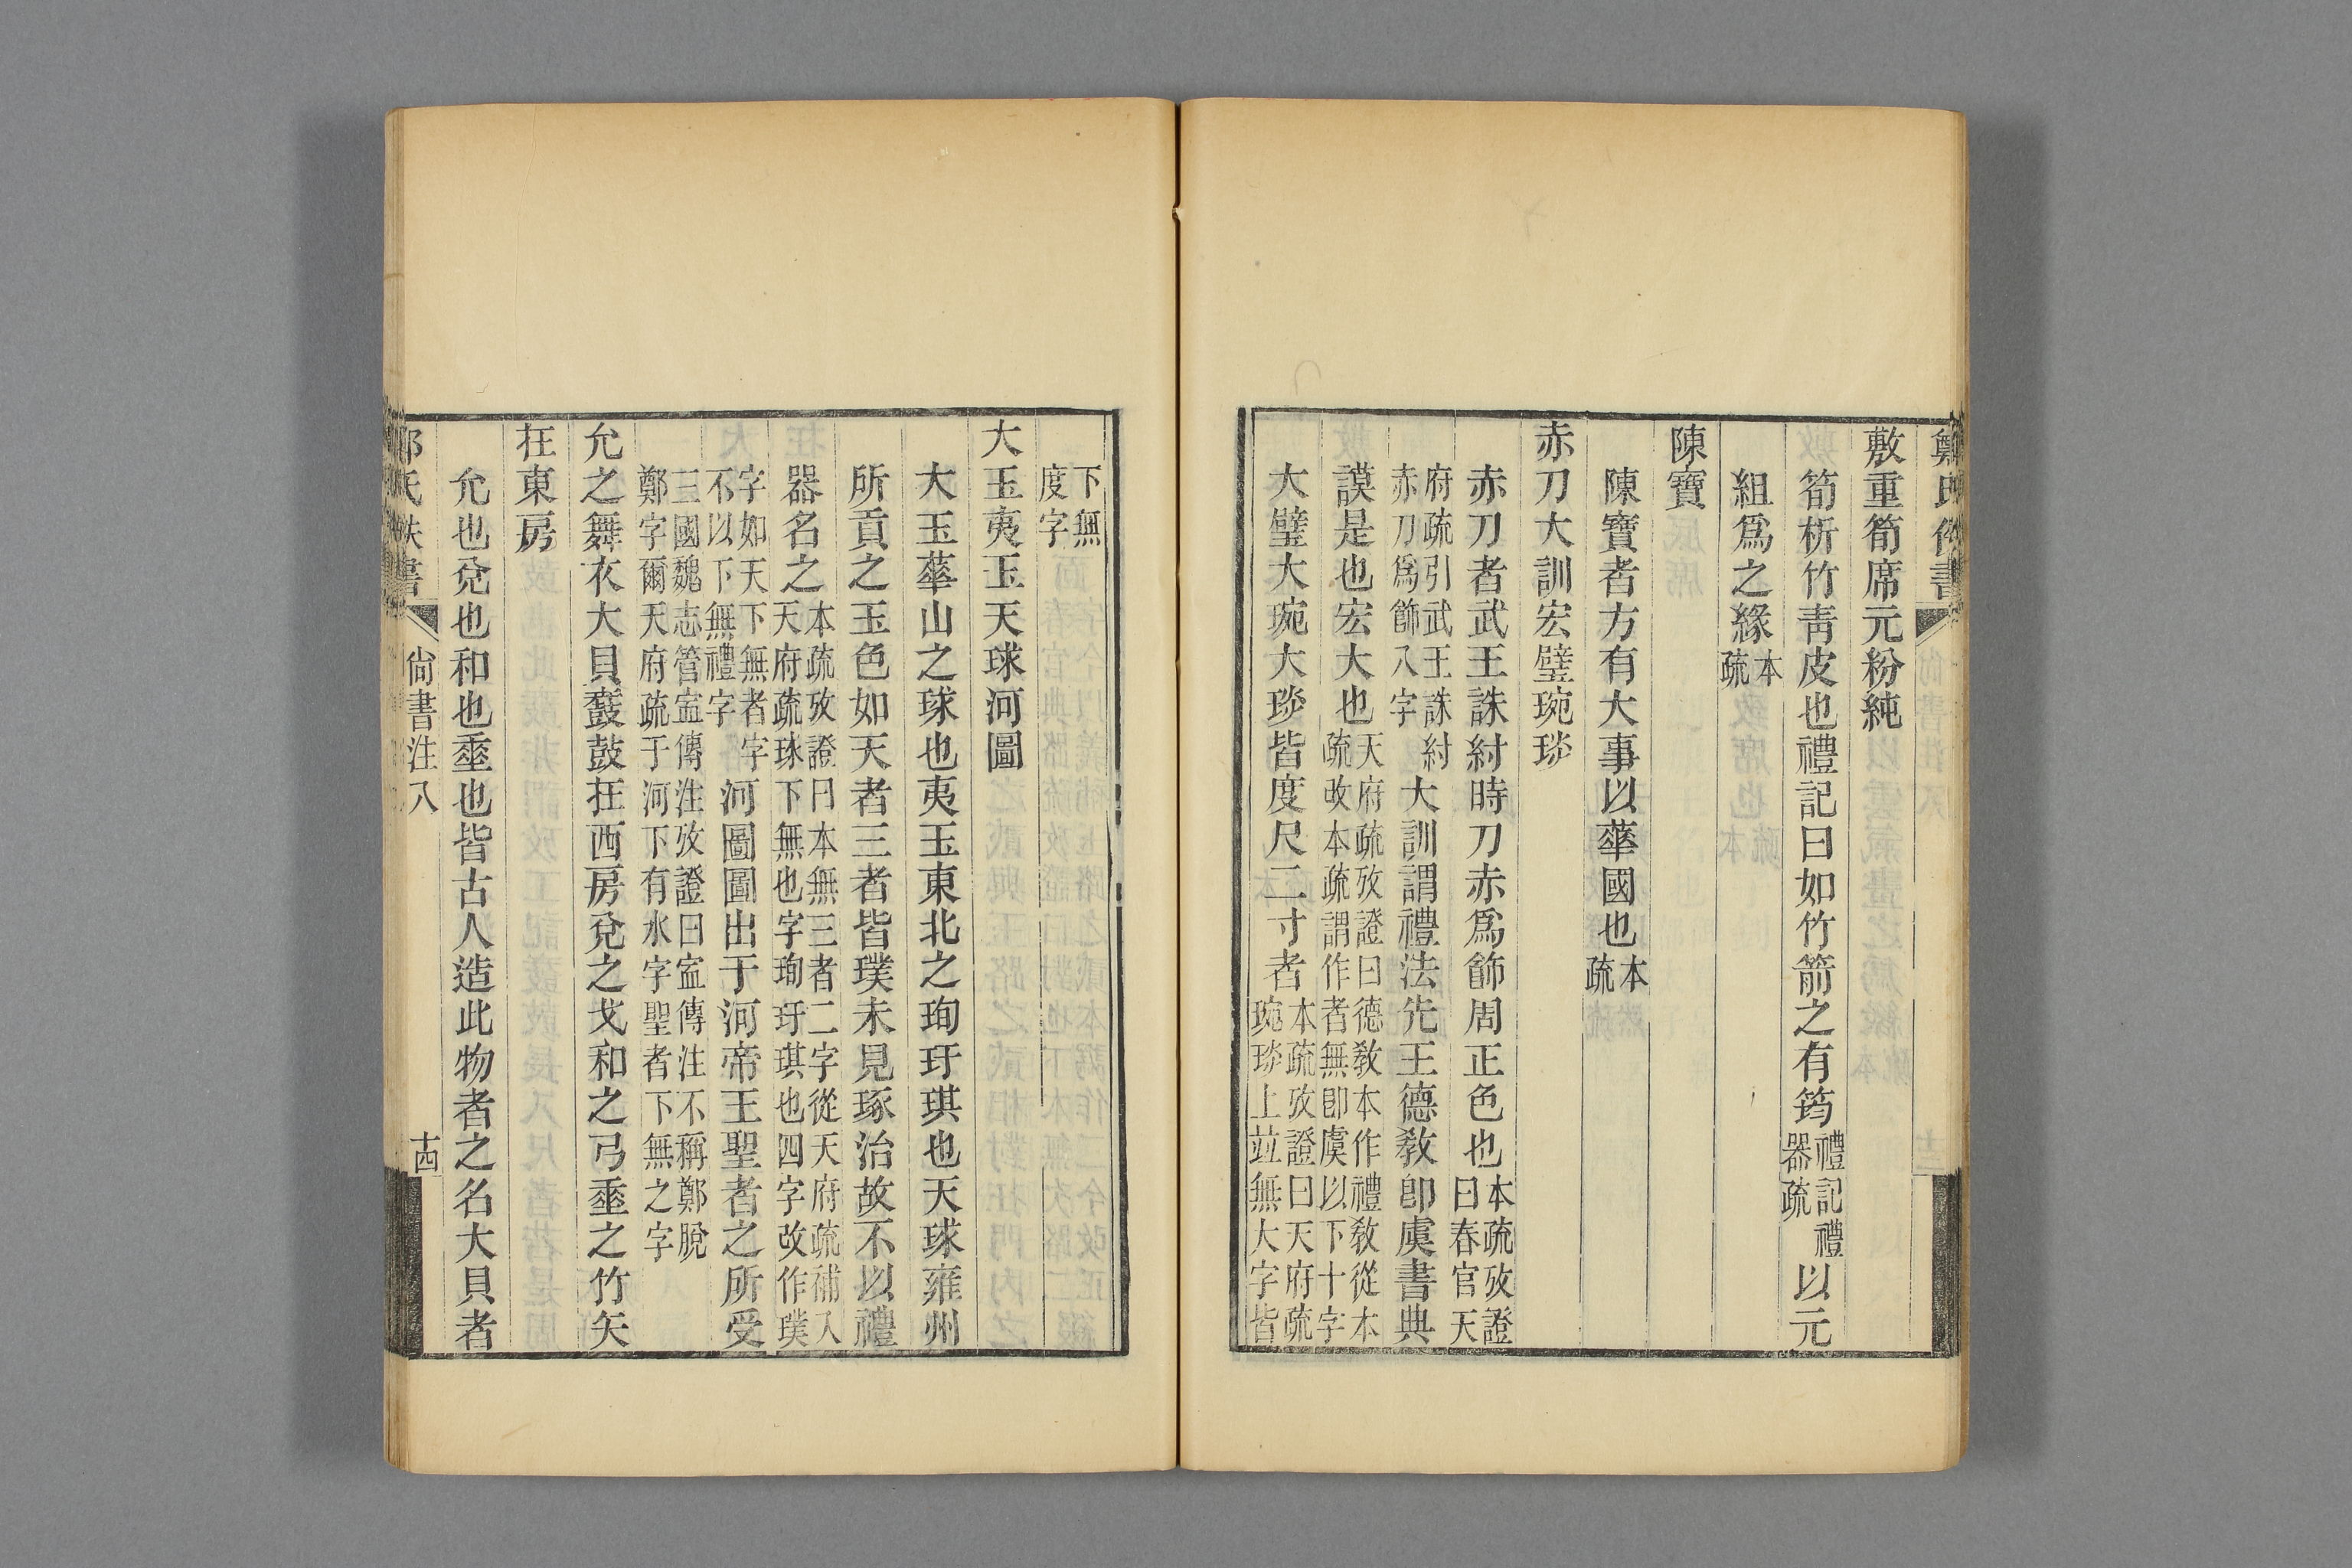 敷重筍席元粉純
筍析竹靑皮也禮記曰如竹箭之有筠禮記禮器疏以元
組爲之緣本疏
陳寶
陳寶者方有大事以華國也本疏
赤刀大訓宏璧琬琰
赤刀者武王誅紂時刀赤爲飾周正色也本疏攷證曰春官天
府疏引武王誅紂赤刀爲飾八字大訓謂禮法先王德敎卽虞書典
謨是也宏大也天府疏攷證曰德敎本作禮敎從本疏改本疏謂作者無卽虞以下十字
大璧大琬大琰皆度尺二寸者本疏攷證曰天府疏琬琰上並無大字皆
下無度字
大玉夷玉天球河圖
大玉華山之球也夷玉東北之珣玗琪也天球雍州
所貢之玉色如天者三者皆璞未見琢治故不以禮
器名之本疏攷證曰本無三者二字從天府疏補入天府疏球下無也字珣玗琪也四字改作璞
字如天下無者字不以下無禮字河圖圖出于河帝王聖者之所受
三國魏志管寍傳注攷證曰寍傳注不稱鄭脫鄭字爾天府疏于河下有水字聖者下無之字
允之舞衣大貝鼖鼓在西房兌之戈和之弓垂之竹矢
在東房
允也兌也和也垂也皆古人造此物者之名大貝者
氏佚書 尙書注八 十四